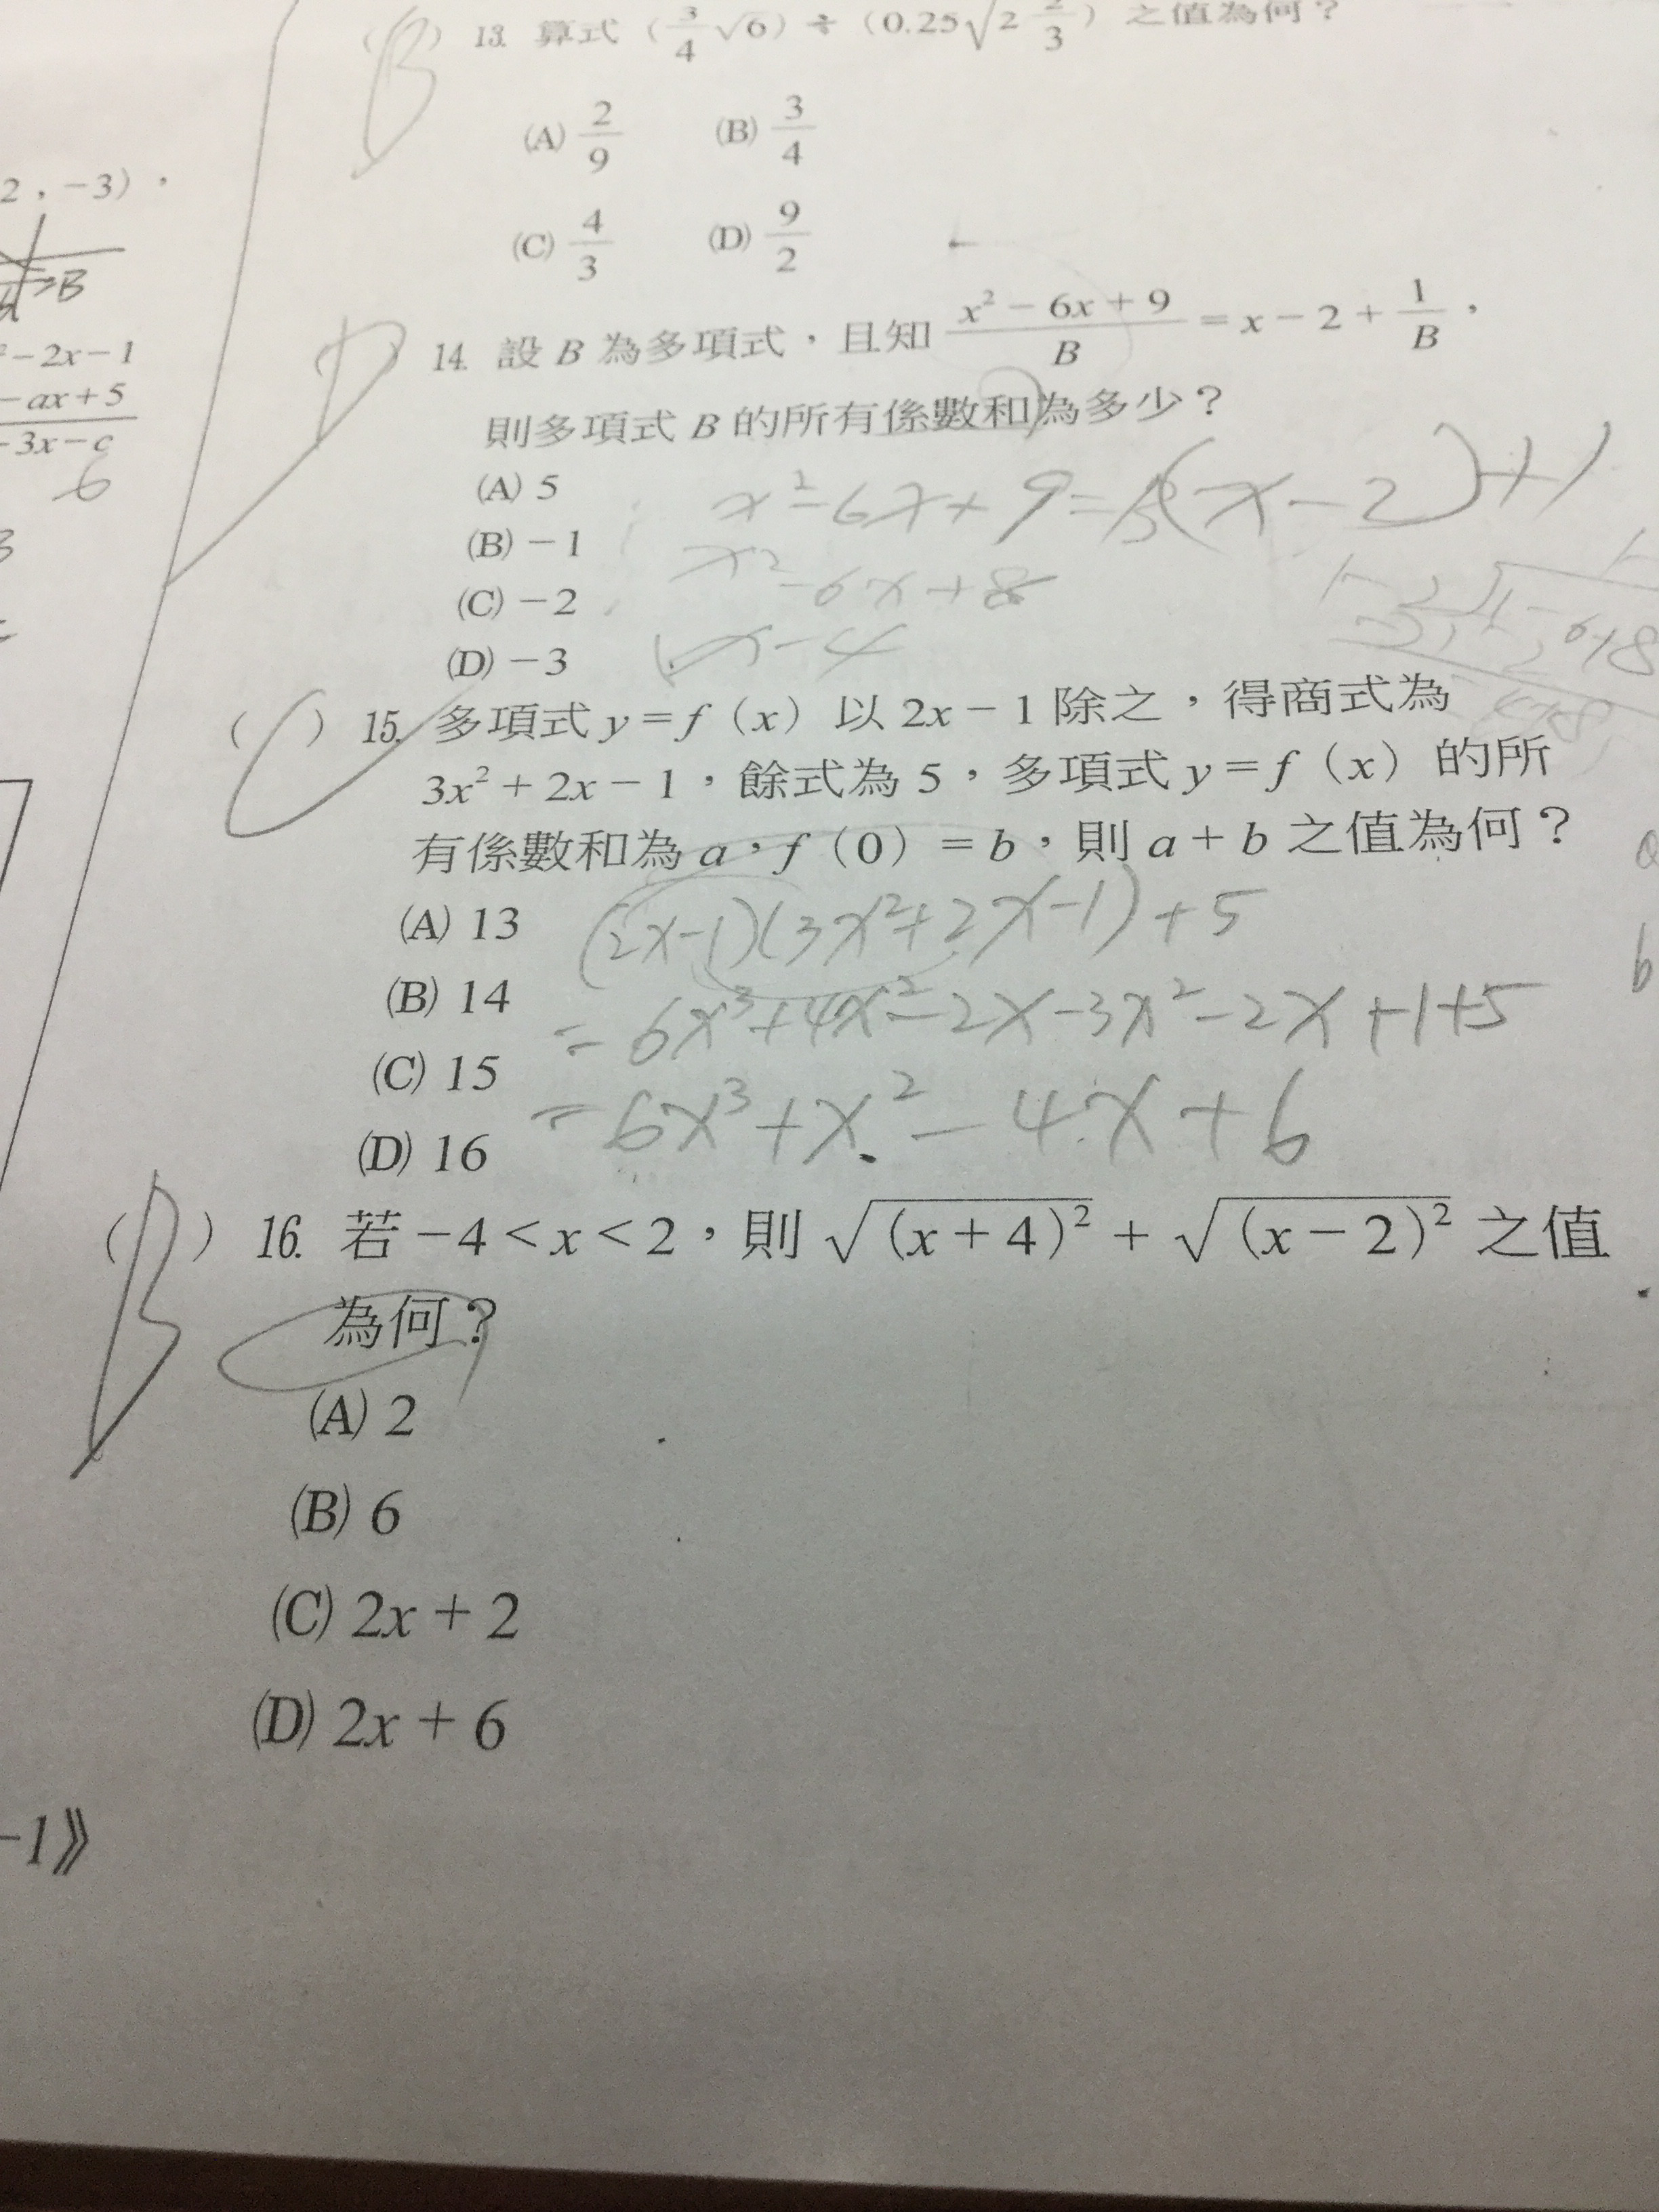 2，-3)，
B
-2x-1
-ax+5
-3x-c
6
-1》
B
( ) 13. 算式（3/4 √6）÷（0.25√2 2/3）之值為何？
(A) 2/9 (B) 3/4
(C) 4/3 (D) 9/2
D
14. 設 B 為多項式，且知 (x²-6x+9)/B = x-2+1/B，
則多項式 B 的所有係數和為多少？
(A) 5
(B) -1
(C) -2
(D) -3
x²-6x+9=B(x-2)+1
x²-6x+8
x-4
( ) 15. 多項式 y=f（x）以 2x-1 除之，得商式為
3x²+2x-1，餘式為 5，多項式 y=f（x）的所
有係數和為 a，f（0）=b，則 a+b 之值為何？
(A) 13
(B) 14
(C) 15
(D) 16
(2x-1)(3x²+2x-1)+5
=6x³+4x²-2x-3x²-2x+1+5
=6x³+x²-4x+6
b
( B ) 16. 若 -4<x<2，則 √(x+4)² + √(x-2)² 之值
為何？
(A) 2
(B) 6
(C) 2x+2
(D) 2x+6